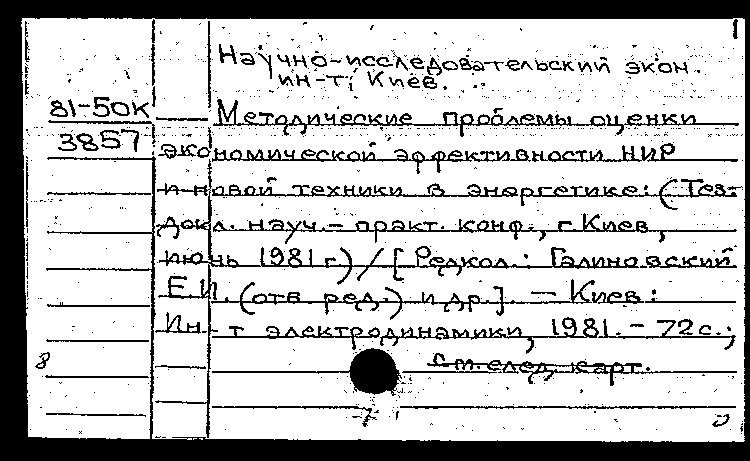 1
Научно-исследовательский экон.
ин-т, Киев.
81-50К Методические проблемы оценки
3857 экономической эффективности НИР
и новой техники в энергетике: (Тез.
докл. науч.-практ. конф., г. Киев,
июнь 1981 г.) / [Редкол.: Галиновский
Е.И. (отв. ред.) и др.]. — Киев:
Ин-т электродинамики, 1981. - 72с.;
8 См. след. карт.